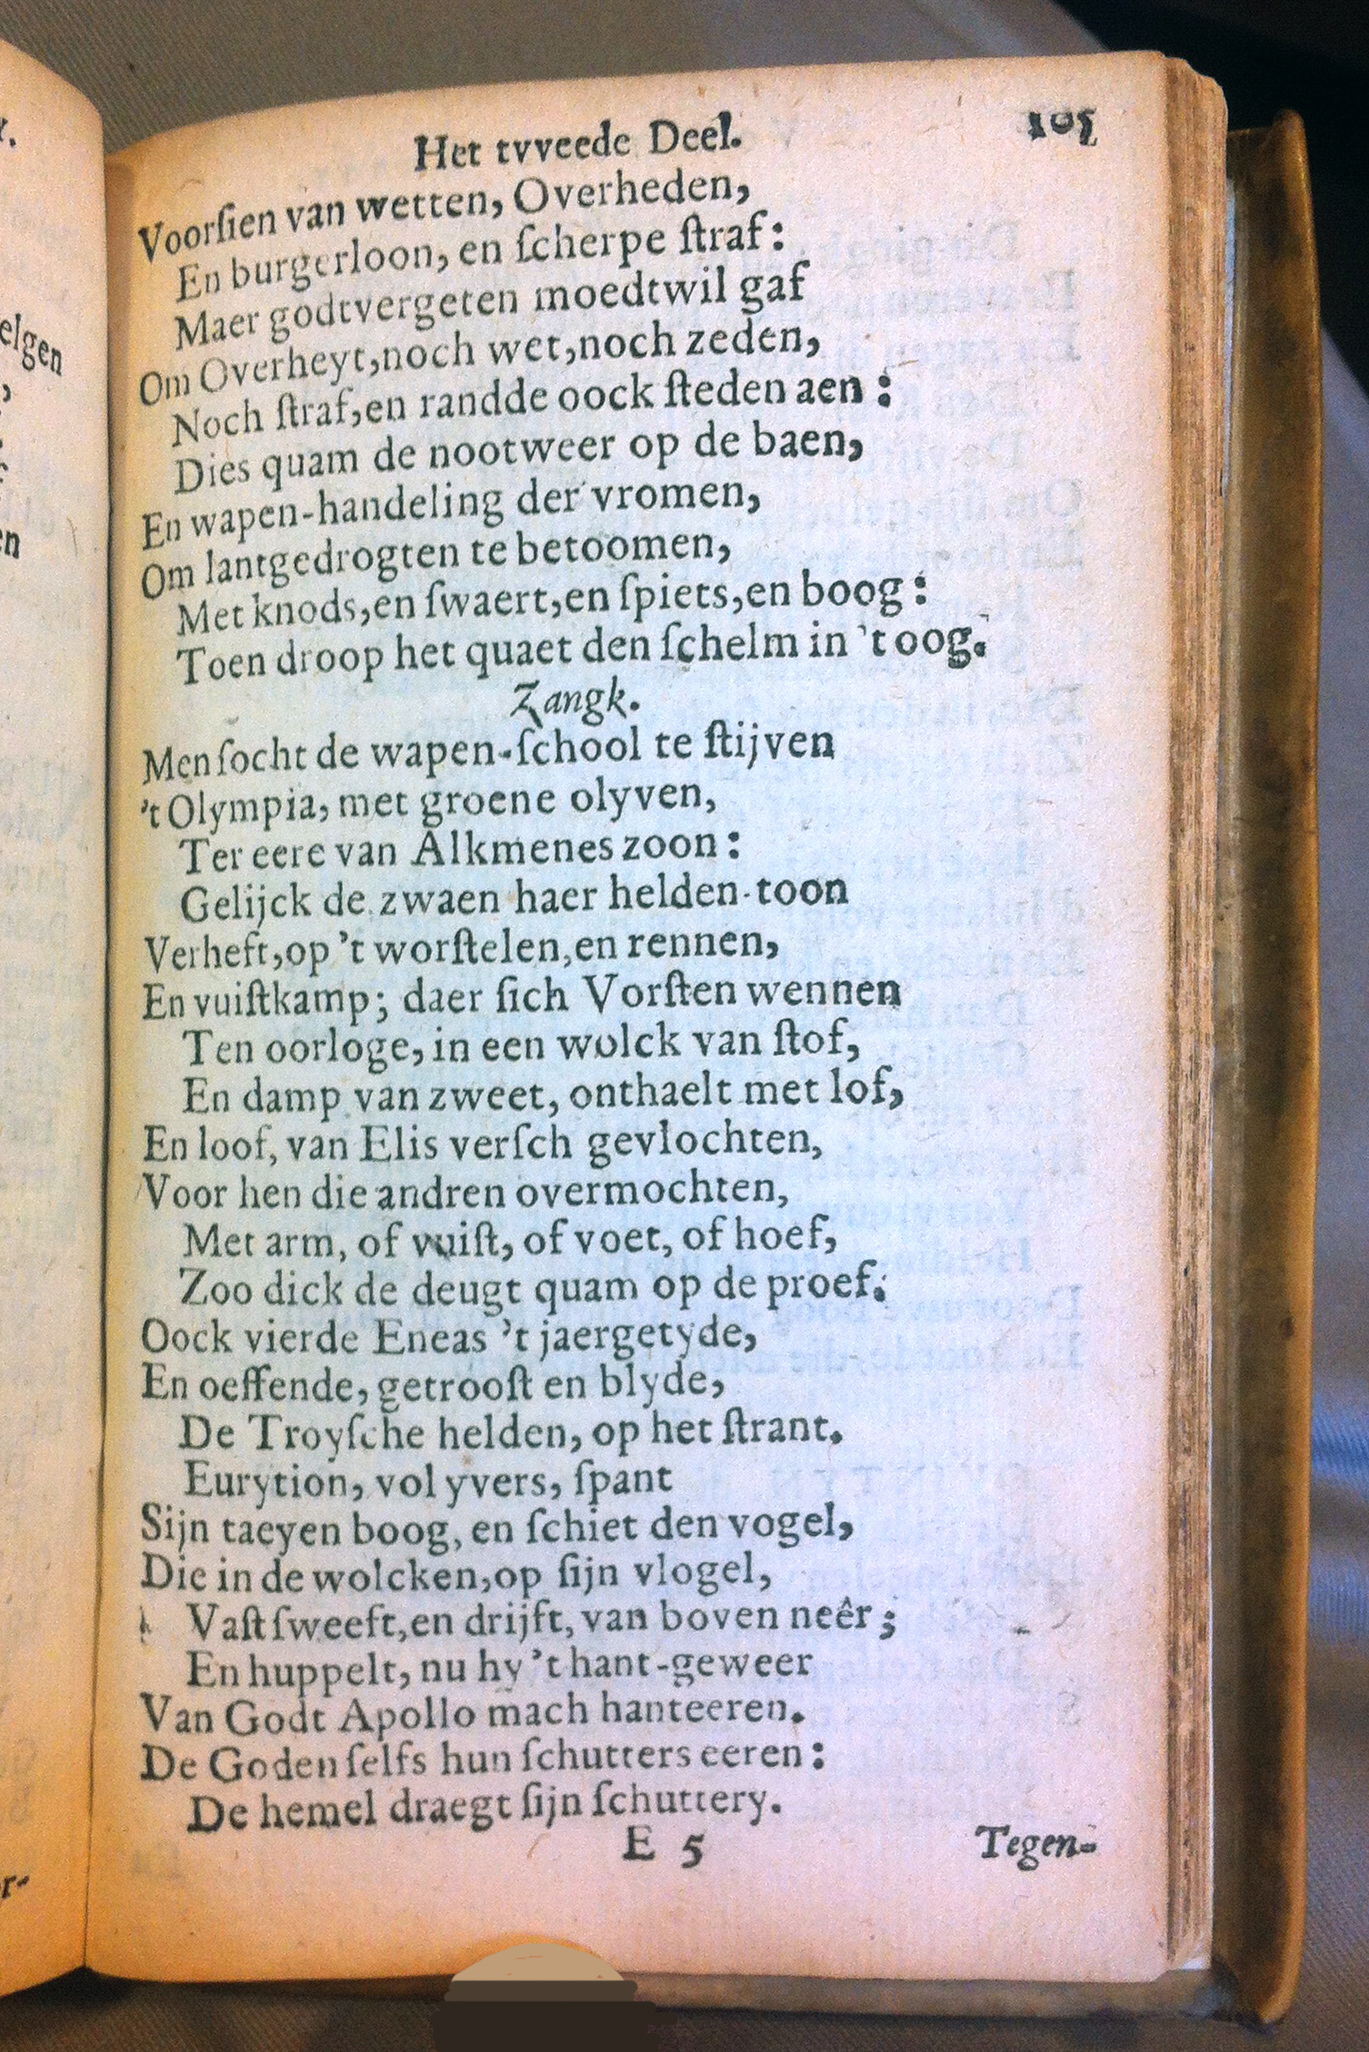 Het tvveede Deel. 105
Voorſien van wetten, Overheden,
En burgerloon, en ſcherpe ſtraf:
Maer godtvergeten moedtwil gaf
Om Overheyt, noch wet, noch zeden,
Noch ſtraf, en randde oock ſteden aen:
Dies quam de nootweer op de baen,
En wapen-handeling der vromen,
Om lantgedrogten te betoomen,
Met knods, en ſwaert, en ſpiets, en boog:
Toen droop het quaet den ſchelm in 't oog.
Zangk.
Men ſocht de wapen-ſchool te ſtijven
't Olympia, met groene olyven,
Ter eere van Alkmenes zoon:
Gelijck de zwaen haer helden-toon
Verheft, op 't worſtelen, en rennen,
En vuiſtkamp; daer ſich Vorſten wennen
Ten oorloge, in een wolck van ſtof,
En damp van zweet, onthaelt met lof,
En loof, van Elis verſch gevlochten,
Voor hen die andren overmochten,
Met arm, of vuiſt, of voet, of hoef,
Zoo dick de deugt quam op de proef.
Oock vierde Eneas 't jaergetyde,
En oeffende, getrooſt en blyde,
De Troyſche helden, op het ſtrant.
Eurytion, vol yvers, ſpant
Sijn taeyen boog, en ſchiet den vogel,
Die in de wolcken, op ſijn vlogel,
Vaſt ſweeft, en drijft, van boven neêr;
En huppelt, nu hy 't hant-geweer
Van Godt Apollo mach hanteeren.
De Goden ſelfs hun ſchutters eeren:
De hemel draegt ſijn ſchuttery.
E 5 Tegen-
elgen
en